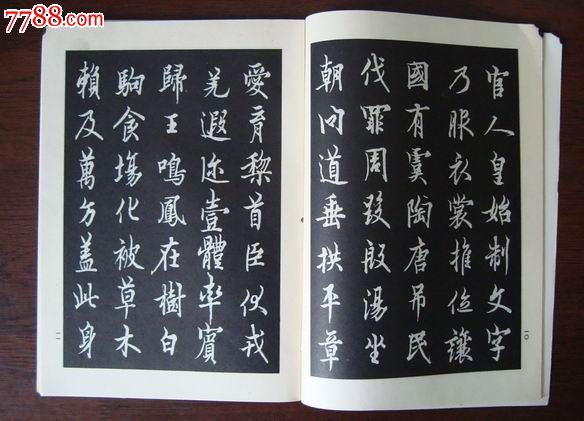 7788.com
官人皇始制文字
乃服衣裳推位讓
國有虞陶唐吊民
伐罪周發殷湯坐
朝问道垂拱平章
一〇
愛育黎首臣伏戎
羌遐迩壹體率賓
歸王鳴鳳在樹白
駒食塲化被草木
賴及萬方蓋此身
一一